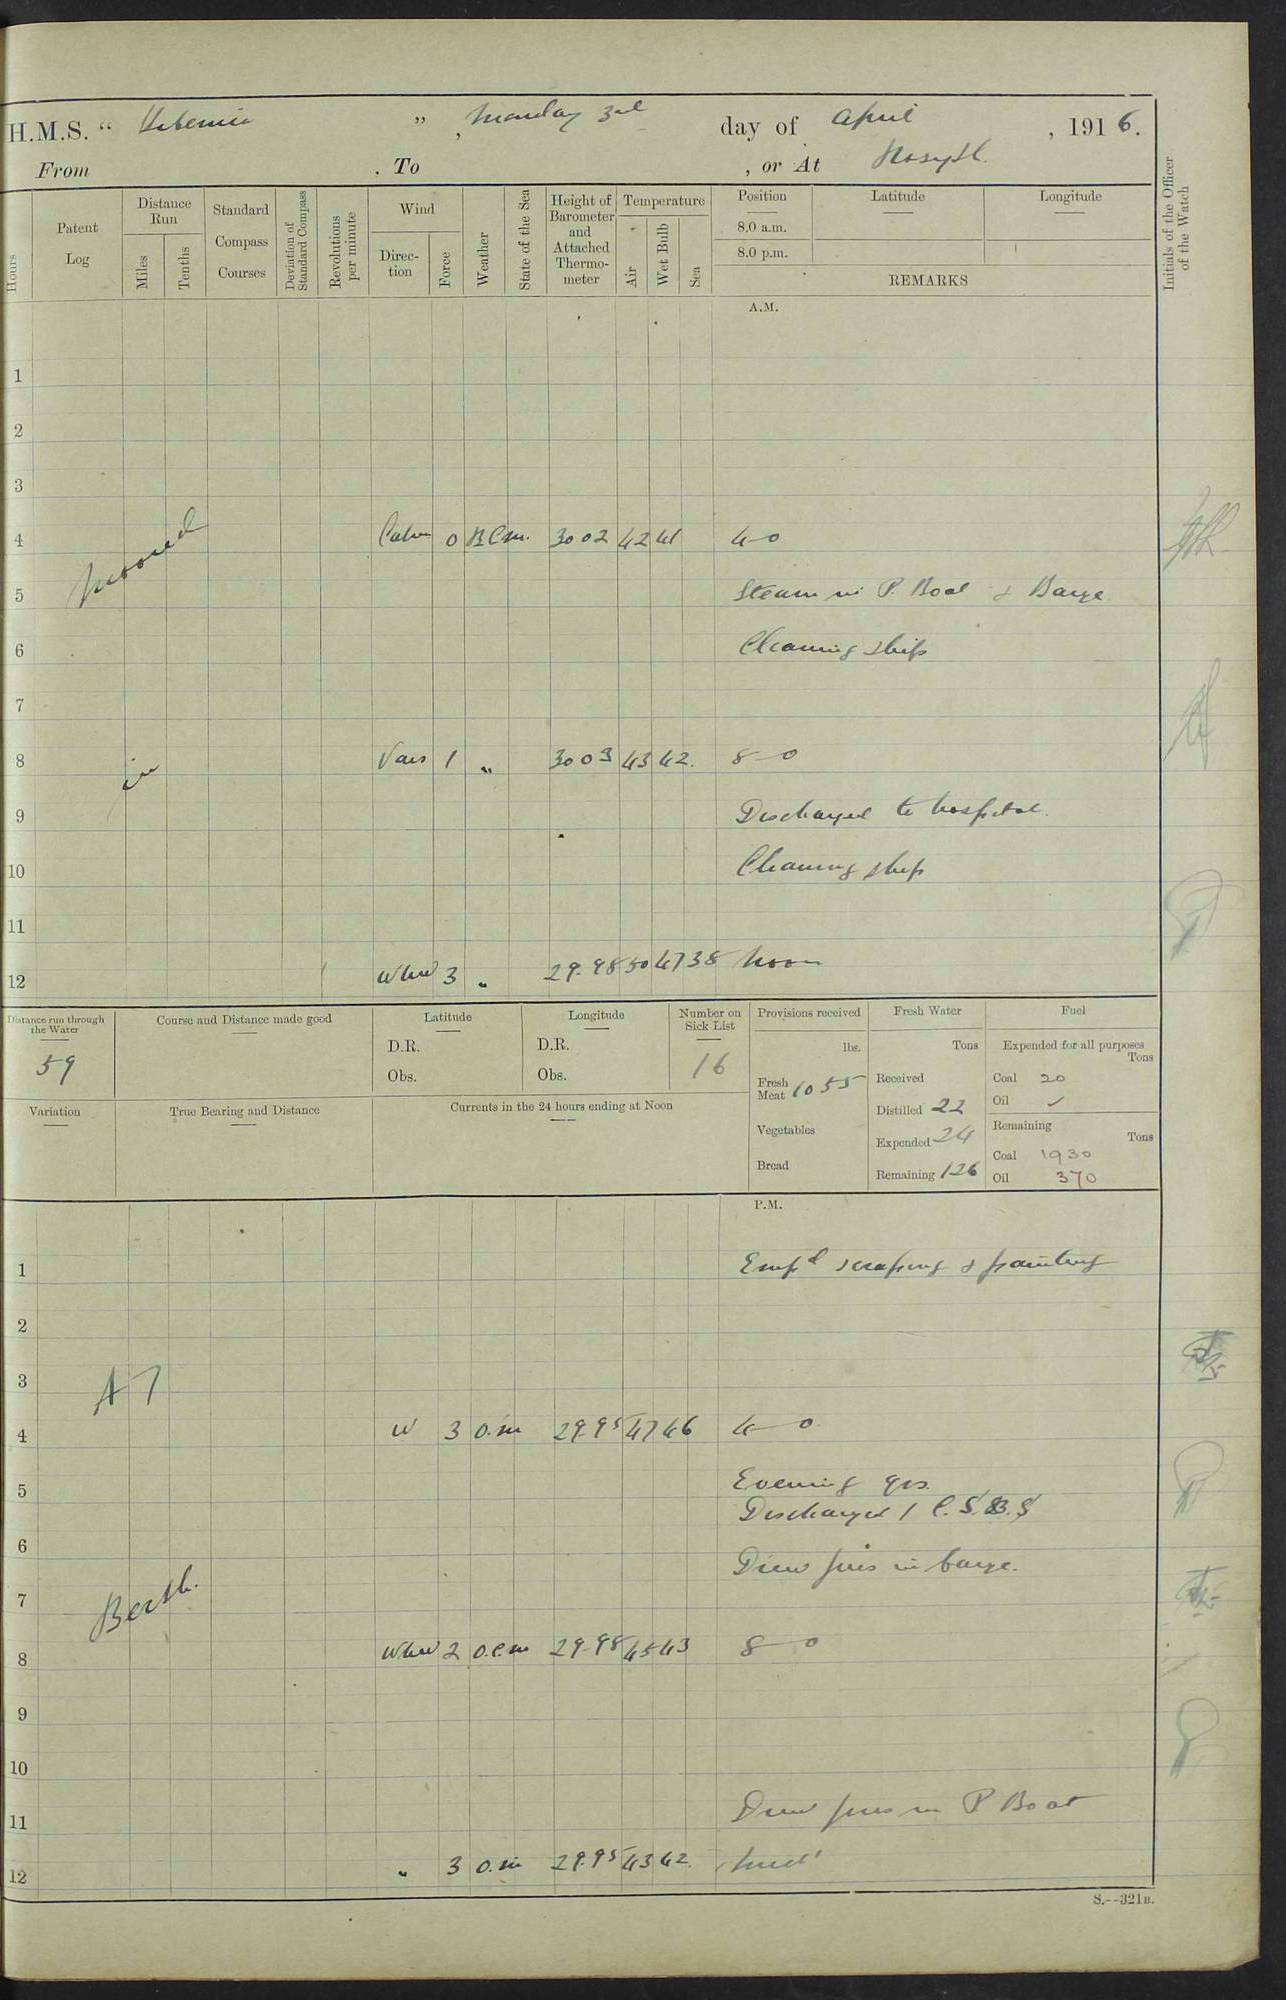 H.M.S. “ Hibernia ” , Monday 3rd day of April , 1916.
From . To , or At Rosyth.
Hours
Patent Log
Distance Run
Miles
Tenths
Standard Compass Courses
Deviation of Standard Compass
Revolutions per minute
Wind
Direction
Force
Weather
State of the Sea
Height of Barometer and Attached Thermometer
Temperature
Air
Wet Bulb
Sea
Position
8.0 a.m.
8.0 p.m.
Latitude
Longitude
REMARKS
Initials of the Officer of the Watch
A.M.
1
2
3
4 Moored Calm 0 B.C.m. 30 02 42 41 4-0
5 Steam in P. Boat & Barge
6 Cleaning ship
7
8 in Vars 1 " 30 03 43 42. 8-0
9 Discharged to hospital.
10 Cleaning ship
11
12 WNW 3 " 29.98 50 47 38 Noon
Distance run through the Water
59
Course and Distance made good
Latitude
D.R.
Obs.
Longitude
D.R.
Obs.
Number on Sick List
16
Provisions received
lbs.
Fresh Meat 1055
Vegetables
Bread
Fresh Water
Tons
Received
Distilled 22
Expended 24
Remaining 126
Fuel
Expended for all purposes
Tons
Coal 20
Oil ✓
Remaining
Tons
Coal 1930
Oil 370
Variation
True Bearing and Distance
Currents in the 24 hours ending at Noon
P.M.
1 Empd scraping & painting
2
3 A 7
4 W 3 O.m 29.95 47 46 4-0
5 Evening qrs.
Discharged 1 C.S.B.S
6 Drew fires in barge.
7 Berth.
8 WNW 2 O.C.m 29.98 45 43 8-0
9
10
11 Drew fires in P Boat
12 " 3 O.m 29.95 43 42. Midt
S.--321B.